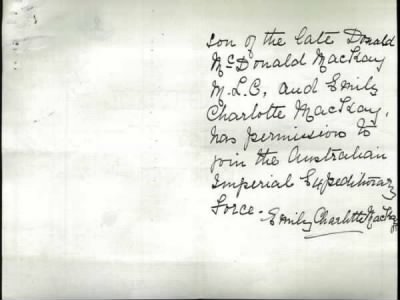 son of the late Donald
McDonald MacKay
M.L.C, and Emily
Charlotte MacKay,
has permission to
join the Australian
Imperial Expeditionary
Force.
Emily Charlotte MacKay